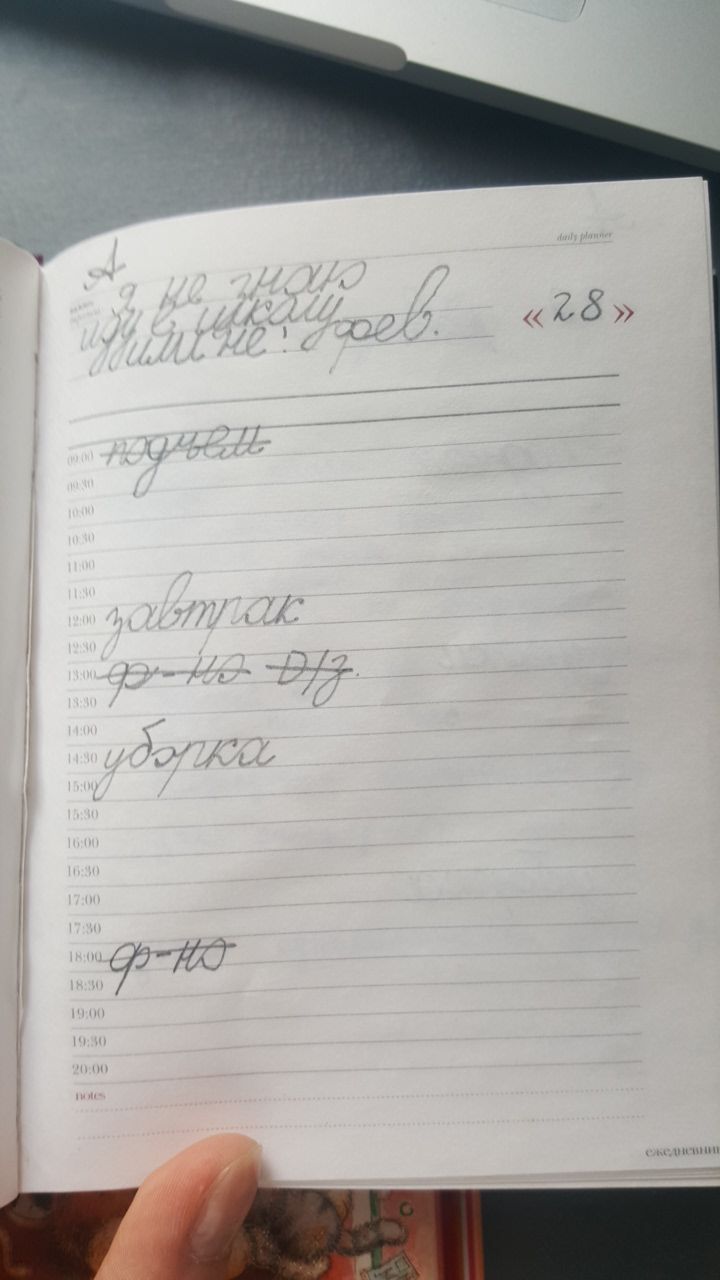 daily planner
А
я не знаю
иду в школу
или не! фев.
«28»
09:00 подъем
09:30
10:00
10:30
11:00
11:30
12:00 завтрак
12:30
13:00 ф-но D/з.
13:30
14:00
14:30 уборка
15:00
15:30
16:00
16:30
17:00
17:30
18:00 ф-но
18:30
19:00
19:30
20:00
notes
ежедневник